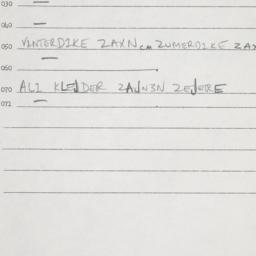 030 —
040 —
050 VINTERDIKE ZAXN ZUMERDIKE ZAX
—
060
070 ALI KLEJDER ZAJN3N ZEJERE
072 —